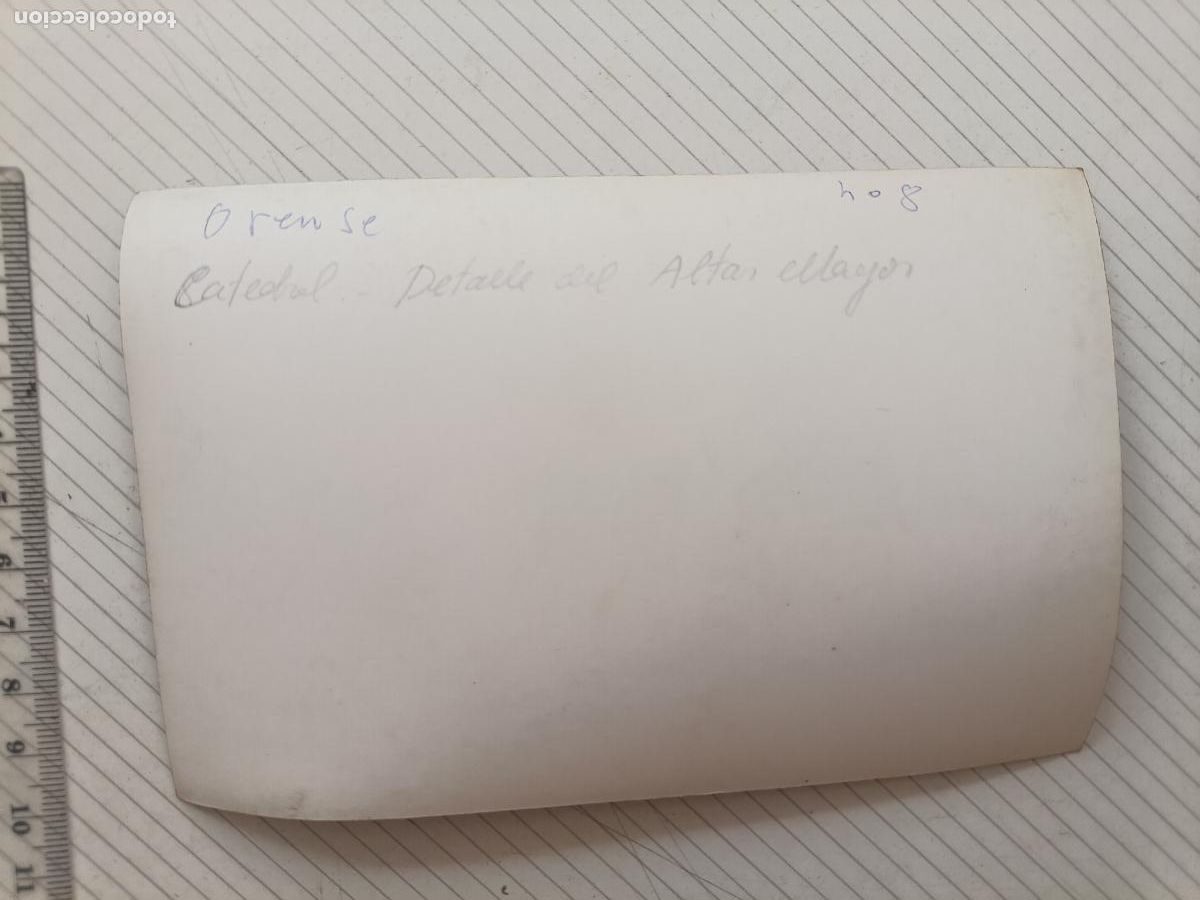 todocoleccion
Orense 408
Catedral - Detalle del Altar Mayor
5
6
7
8
9
10
11